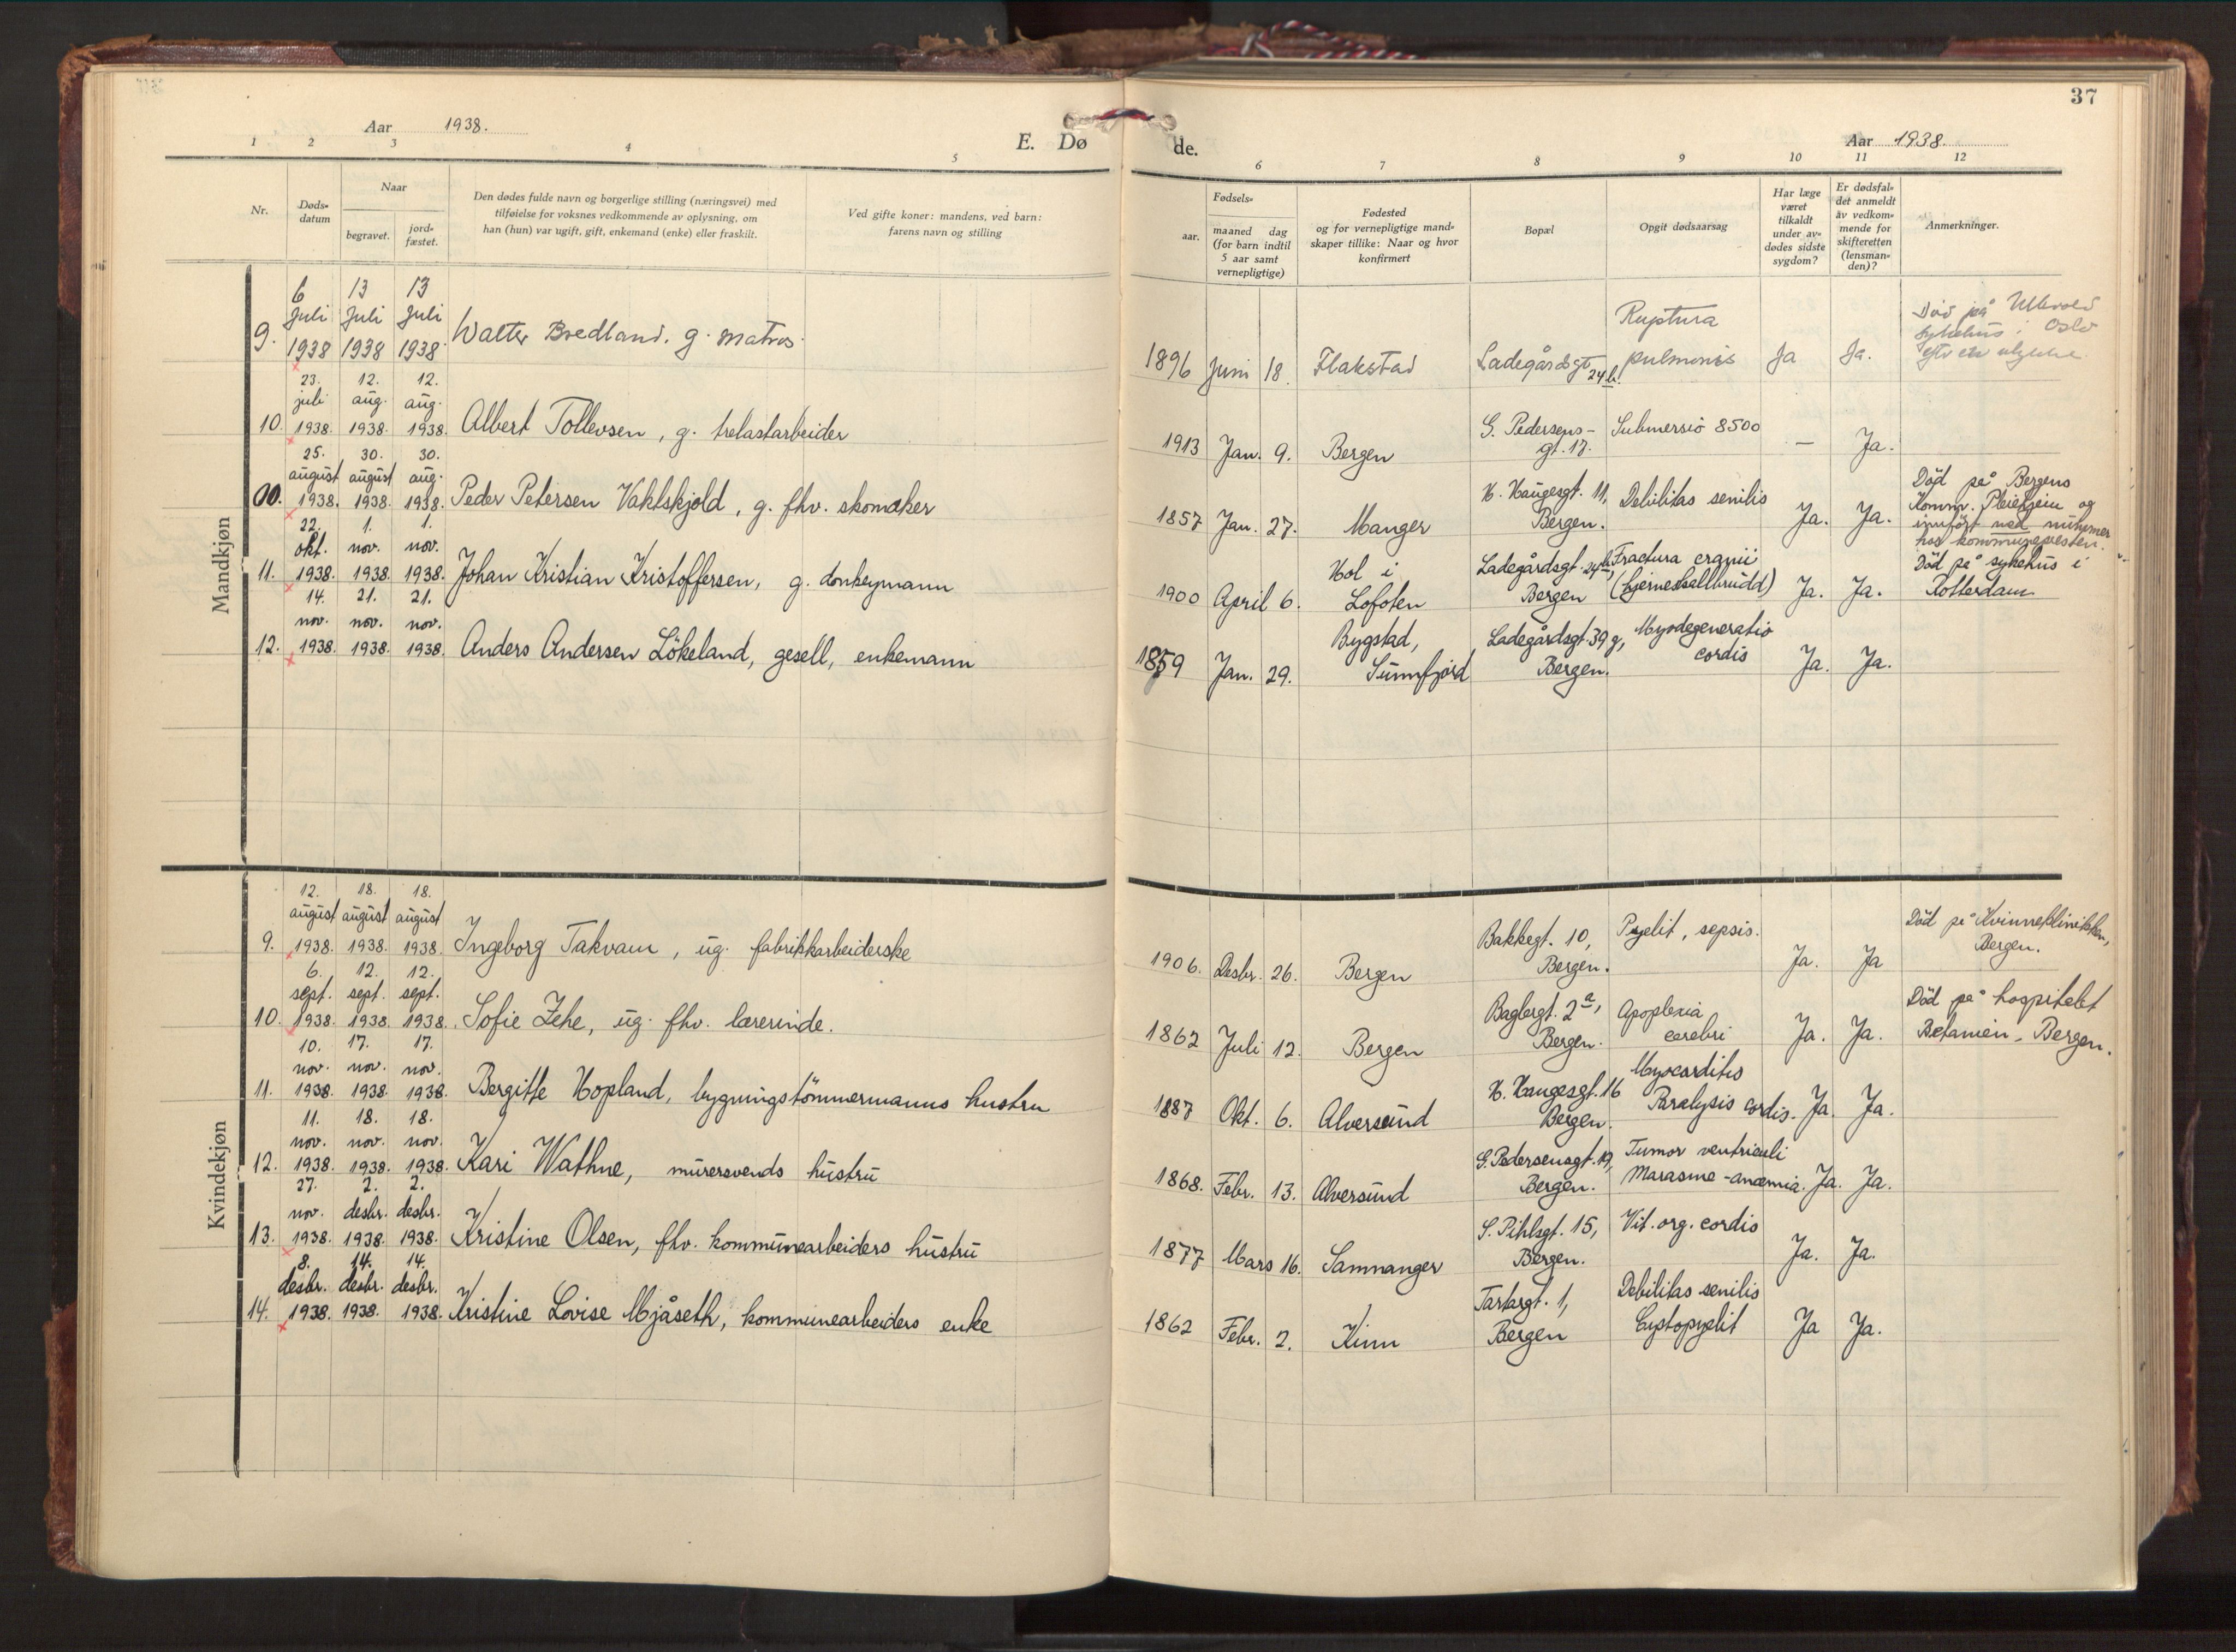 37
Aar 1938.
E. Dø
de.
Aar 1938.
1 2 3 4 5 6 7 8 9 10 11 12
Nr.
Døds-
datum
Naar
begravet.
jord-
fæstet.
Den dødes fulde navn og borgerlige stilling (næringsvei) med
tilføielse for voksnes vedkommende av oplysning, om
han (hun) var ugift, gift, enkemand (enke) eller fraskilt.
Ved gifte koner: mandens, ved barn:
farens navn og stilling
Fødsels-
aar.
maaned dag
(for barn indtil
5 aar samt
vernepligtige)
Fødested
og for vernepligtige mand-
skaper tillike: Naar og hvor
konfirmert
Bopæl
Opgit dødsaarsag
Har læge
været
tilkaldt
under av-
dødes sidste
sygdom?
Er dødsfal-
det anmeldt
av vedkom-
mende for
skifteretten
(lensman-
den)?
Anmerkninger.
Mandkjøn
6 13 13
Juli Juli Juli
9. 1938 1938 1938 Walter Bredland. g. matros.
1896 Juni 18. Flakstad Ladegårdsgt 24 b. Ruptura
pulmonis Ja Ja. Død på Ullevold
sykehus i Oslo
23. 12. 12.
juli aug. aug.
10. 1938. 1938. 1938. Albert Tollevsen, g. trelastarbeider
1913 Jan. 9. Bergen G. Pedersens-
gt. 17. Submersio 8500 — Ja.
25. 30. 30.
august august aug.
10. 1938. 1938. 1938. Peder Petersen Vaktskjold, g. fhv. skomaker
1857 Jan. 27. Manger H. Haugesgt. 11,
Bergen. Debilitas senilis Ja. Ja. Död på Bergens
Komm. Pleiehjem og
innfört med nummer
hos kommunepresten.
22. 1. 1.
okt. nov. nov.
11. 1938. 1938. 1938. Johan Kristian Kristoffersen, g. donkeymann
1900 April 6. Hol i
Lofoten Ladegårdsgt. 24b,
Bergen Fractura cranii
(hjerneskallbrudd) Ja. Ja. Död på sykehus i
Rotterdam
14. 21. 21.
nov. nov. nov.
12. 1938. 1938. 1938. Anders Andersen Lökeland, gesell, enkemann
1859 Jan. 29. Bygstad,
Sunnfjord Ladegårdsgt. 39 g,
Bergen. Myodegeneratio
cordis Ja. Ja.
Kvindekjøn
12. 18. 18.
august august august
9. 1938. 1938. 1938. Ingeborg Takvam, ug. fabrikkarbeiderske
1906. Desbr. 26. Bergen Bakkegt. 10,
Bergen. Pyelit, sepsis. Ja. Ja Död på Kvinneklinikken,
Bergen.
6. 12. 12.
sept. sept. sept.
10. 1938. 1938. 1938. Sofie Jehe, ug. fhv. lærerinde.
1862 Juli 12. Bergen Baglergt. 2 a,
Bergen. Apoplexia
cerebri Ja. Ja. Död på hospitalet
Betanien, Bergen.
10. 17. 17.
nov. nov. nov.
11. 1938. 1938. 1938. Bergitte Hopland, bygningstömmermanns hustru
1887 Okt. 6. Alversund H. Haugesgt. 16
Bergen. Myocarditis
Paralysis cordis. Ja. Ja.
11. 18. 18.
nov. nov. nov.
12. 1938. 1938. 1938. Kari Wathne, murersvends hustru
1868. Febr. 13. Alversund G. Pedersensgt. 19,
Bergen. Tumor ventriculi
Marasme - anæmia. Ja. Ja.
27. 2. 2.
nov. desbr. desbr.
13. 1938. 1938. 1938. Kristine Olsen, fhv. kommunearbeiders hustru
1877 Mars 16. Samnanger S. Pihlsgt. 15,
Bergen. Vit. org. cordis Ja. Ja.
8. 14. 14.
desbr. desbr. desbr.
14. 1938. 1938. 1938. Kristine Lovise Mjåseth, kommunearbeiders enke
1862 Febr. 2. Kinn Tartargt. 1,
Bergen Debilitas senilis
Cystopyelit Ja Ja.